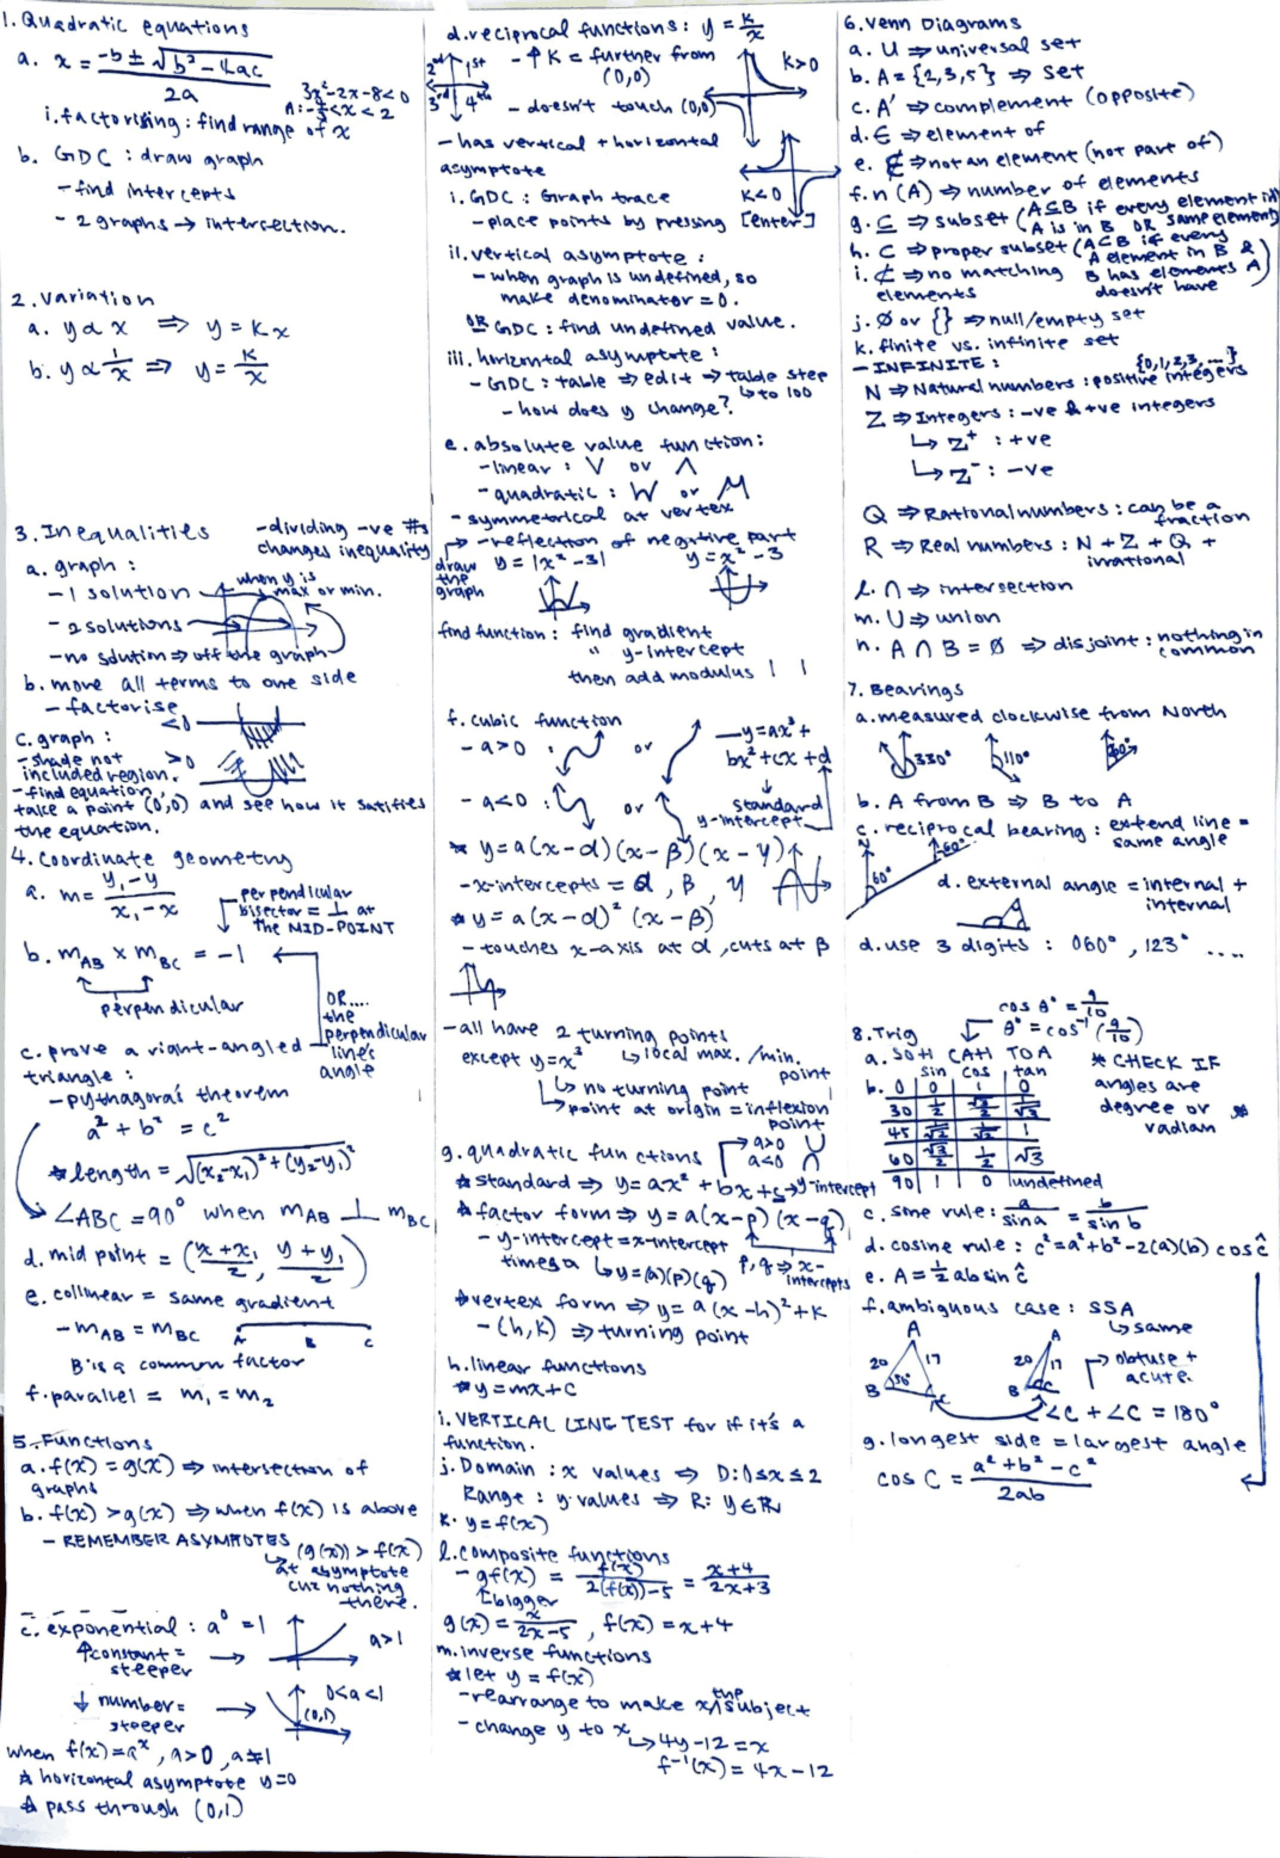 1. Quadratic equations
a. x = -b ± √b² - 4ac / 2a
3x² - 2x - 8 < 0
i. factorising : find range of x
b. GDC : draw graph
- find intercepts
- 2 graphs → intersection.
2. Variation
a. y α x ⇒ y = Kx
b. y α 1/x ⇒ y = K/x
3. Inequalities
- dividing -ve #s changes inequality
a. graph :
- 1 solution
when y is max or min.
- 2 solutions
- no solution ⇒ off the graph
b. move all terms to one side
- factorise
<0
c. graph :
>0
- shade not included region.
- find equation,
take a point (0,0) and see how it satifies
the equation.
4. Coordinate geometry
a. m = y₁ - y / x₁ - x
perpendicular bisector = ⊥ at the MID-POINT
b. m_AB × m_BC = -1
perpendicular
OR....
the perpendicular line's angle
c. prove a right-angled
triangle :
- pythagoras theorem
a² + b² = c²
* length = √(x₂-x₁)² + (y₂-y₁)²
∠ABC = 90° when m_AB ⊥ m_BC
d. mid point = (x + x₁ / 2, y + y₁ / 2)
e. collinear = same gradient
- m_AB = m_BC
A B C
B is a common factor
f. parallel = m₁ = m₂
5. Functions
a. f(x) = g(x) ⇒ intersection of
graphs
b. f(x) > g(x) ⇒ when f(x) is above
- REMEMBER ASYMPTOTES
(g(x)) > f(x)
at asymptote
cuz nothing
there.
c. exponential : a⁰ = 1
a>1
↑constant =
steeper
↓ number =
steeper
0<a<1
(0,1)
when f(x) = aˣ, a>0, a≠1
* horizontal asymptote y=0
* pass through (0,1)
d. reciprocal functions : y = K/x
2nd 1st
3rd 4th
- ↑K = further from
(0,0)
K>0
- doesn't touch (0,0)
- has vertical + horizontal
asymptote
K<0
i. GDC : Graph trace
- place points by pressing [enter]
ii. vertical asymptote :
- when graph is undefined, so
make denominator = 0.
OR GDC : find undefined value.
iii. horizontal asymptote :
- GDC : table ⇒ edit ⇒ table step
↳ to 100
- how does y change?
e. absolute value function :
- linear : V or Λ
- quadratic : W or M
- symmetrical at vertex
→ - reflection of negative part
draw the graph
y = |x² - 3|
y = x² - 3
find function : find gradient
" y-intercept
then add modulus | |
f. cubic function
- a>0 : or
- y = ax³ +
bx² + cx + d
↓
standard
- a<0 : or
y-intercept
* y = a(x-α)(x-β)(x-γ)
- x-intercepts = α, β, γ
* y = a(x-α)² (x-β)
- touches x-axis at α, cuts at β
- all have 2 turning points
except y=x³
↳ local max./min.
point
↳ no turning point
↳ point at origin = inflexion
point
g. quadratic functions
a>0 ∪
a<0 ∩
* standard ⇒ y = ax² + bx + c → y-intercept
* factor form ⇒ y = a(x-p)(x-q)
- y-intercept = x-intercept
times a ↳ y=(a)(p)(q)
p, q ⇒ x-intercepts
* vertex form ⇒ y = a(x-h)² + K
- (h,K) ⇒ turning point
h. linear functions
* y = mx + c
i. VERTICAL LINE TEST for if it's a
function.
j. Domain : x values ⇒ D: 0≤x≤2
Range : y values ⇒ R: y∈R
K. y = f(x)
l. composite functions
- gf(x) = f(x) / 2(f(x)) - 5 = x+4 / 2x+3
↑bigger
g(x) = x / 2x-5, f(x) = x+4
m. inverse functions
* let y = f(x)
- rearrange to make x the subject
- change y to x
↳ 4y-12 = x
f⁻¹(x) = 4x-12
6. Venn Diagrams
a. U ⇒ universal set
b. A = {2,3,5} ⇒ set
c. A' ⇒ complement (opposite)
d. ∈ ⇒ element of
e. ∉ ⇒ not an element (not part of)
f. n(A) ⇒ number of elements
g. ⊆ ⇒ subset (A⊆B if every element in
A is in B OR same element)
h. ⊂ ⇒ proper subset (A⊂B if every
A element in B &
B has elements A
doesn't have)
i. ⊄ ⇒ no matching
elements
j. Ø or {} ⇒ null/empty set
k. finite vs. infinite set
- INFINITE :
{0,1,2,3,...}
N ⇒ Natural numbers : positive integers
Z ⇒ Integers : -ve & +ve integers
↳ Z⁺ : +ve
↳ Z⁻ : -ve
Q ⇒ Rational numbers : can be a
fraction
R ⇒ Real numbers : N + Z + Q +
irrational
l. ∩ ⇒ intersection
m. U ⇒ union
n. A ∩ B = Ø ⇒ disjoint : nothing in
common
7. Bearings
a. measured clockwise from North
330° 110°
b. A from B ⇒ B to A
c. reciprocal bearing : extend line =
same angle
N
60° 60°
d. external angle = internal +
internal
d. use 3 digits : 060°, 123° ....
cos θ° = 9/10
θ° = cos⁻¹(9/10)
8. Trig
a. SOH CAH TOA
* CHECK IF
angles are
degree or
radian
sin cos tan
b. 0 0 1 0
30 1/2 √3/2 1/√3
45 1/√2 1/√2 1
60 √3/2 1/2 √3
90 1 0 undefined
c. sine rule : a / sin a = b / sin b
d. cosine rule : c² = a² + b² - 2(a)(b) cos ĉ
e. A = ½ ab sin ĉ
f. ambiguous case : SSA
↳ same
A A
20 17 20 17
B 36° C B C
obtuse +
acute.
∠C + ∠C = 180°
g. longest side = largest angle
cos C = a² + b² - c² / 2ab